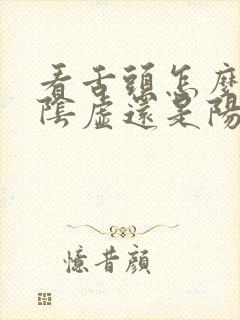 看舌頭怎麼
陰虛還是陽
憶昔顏